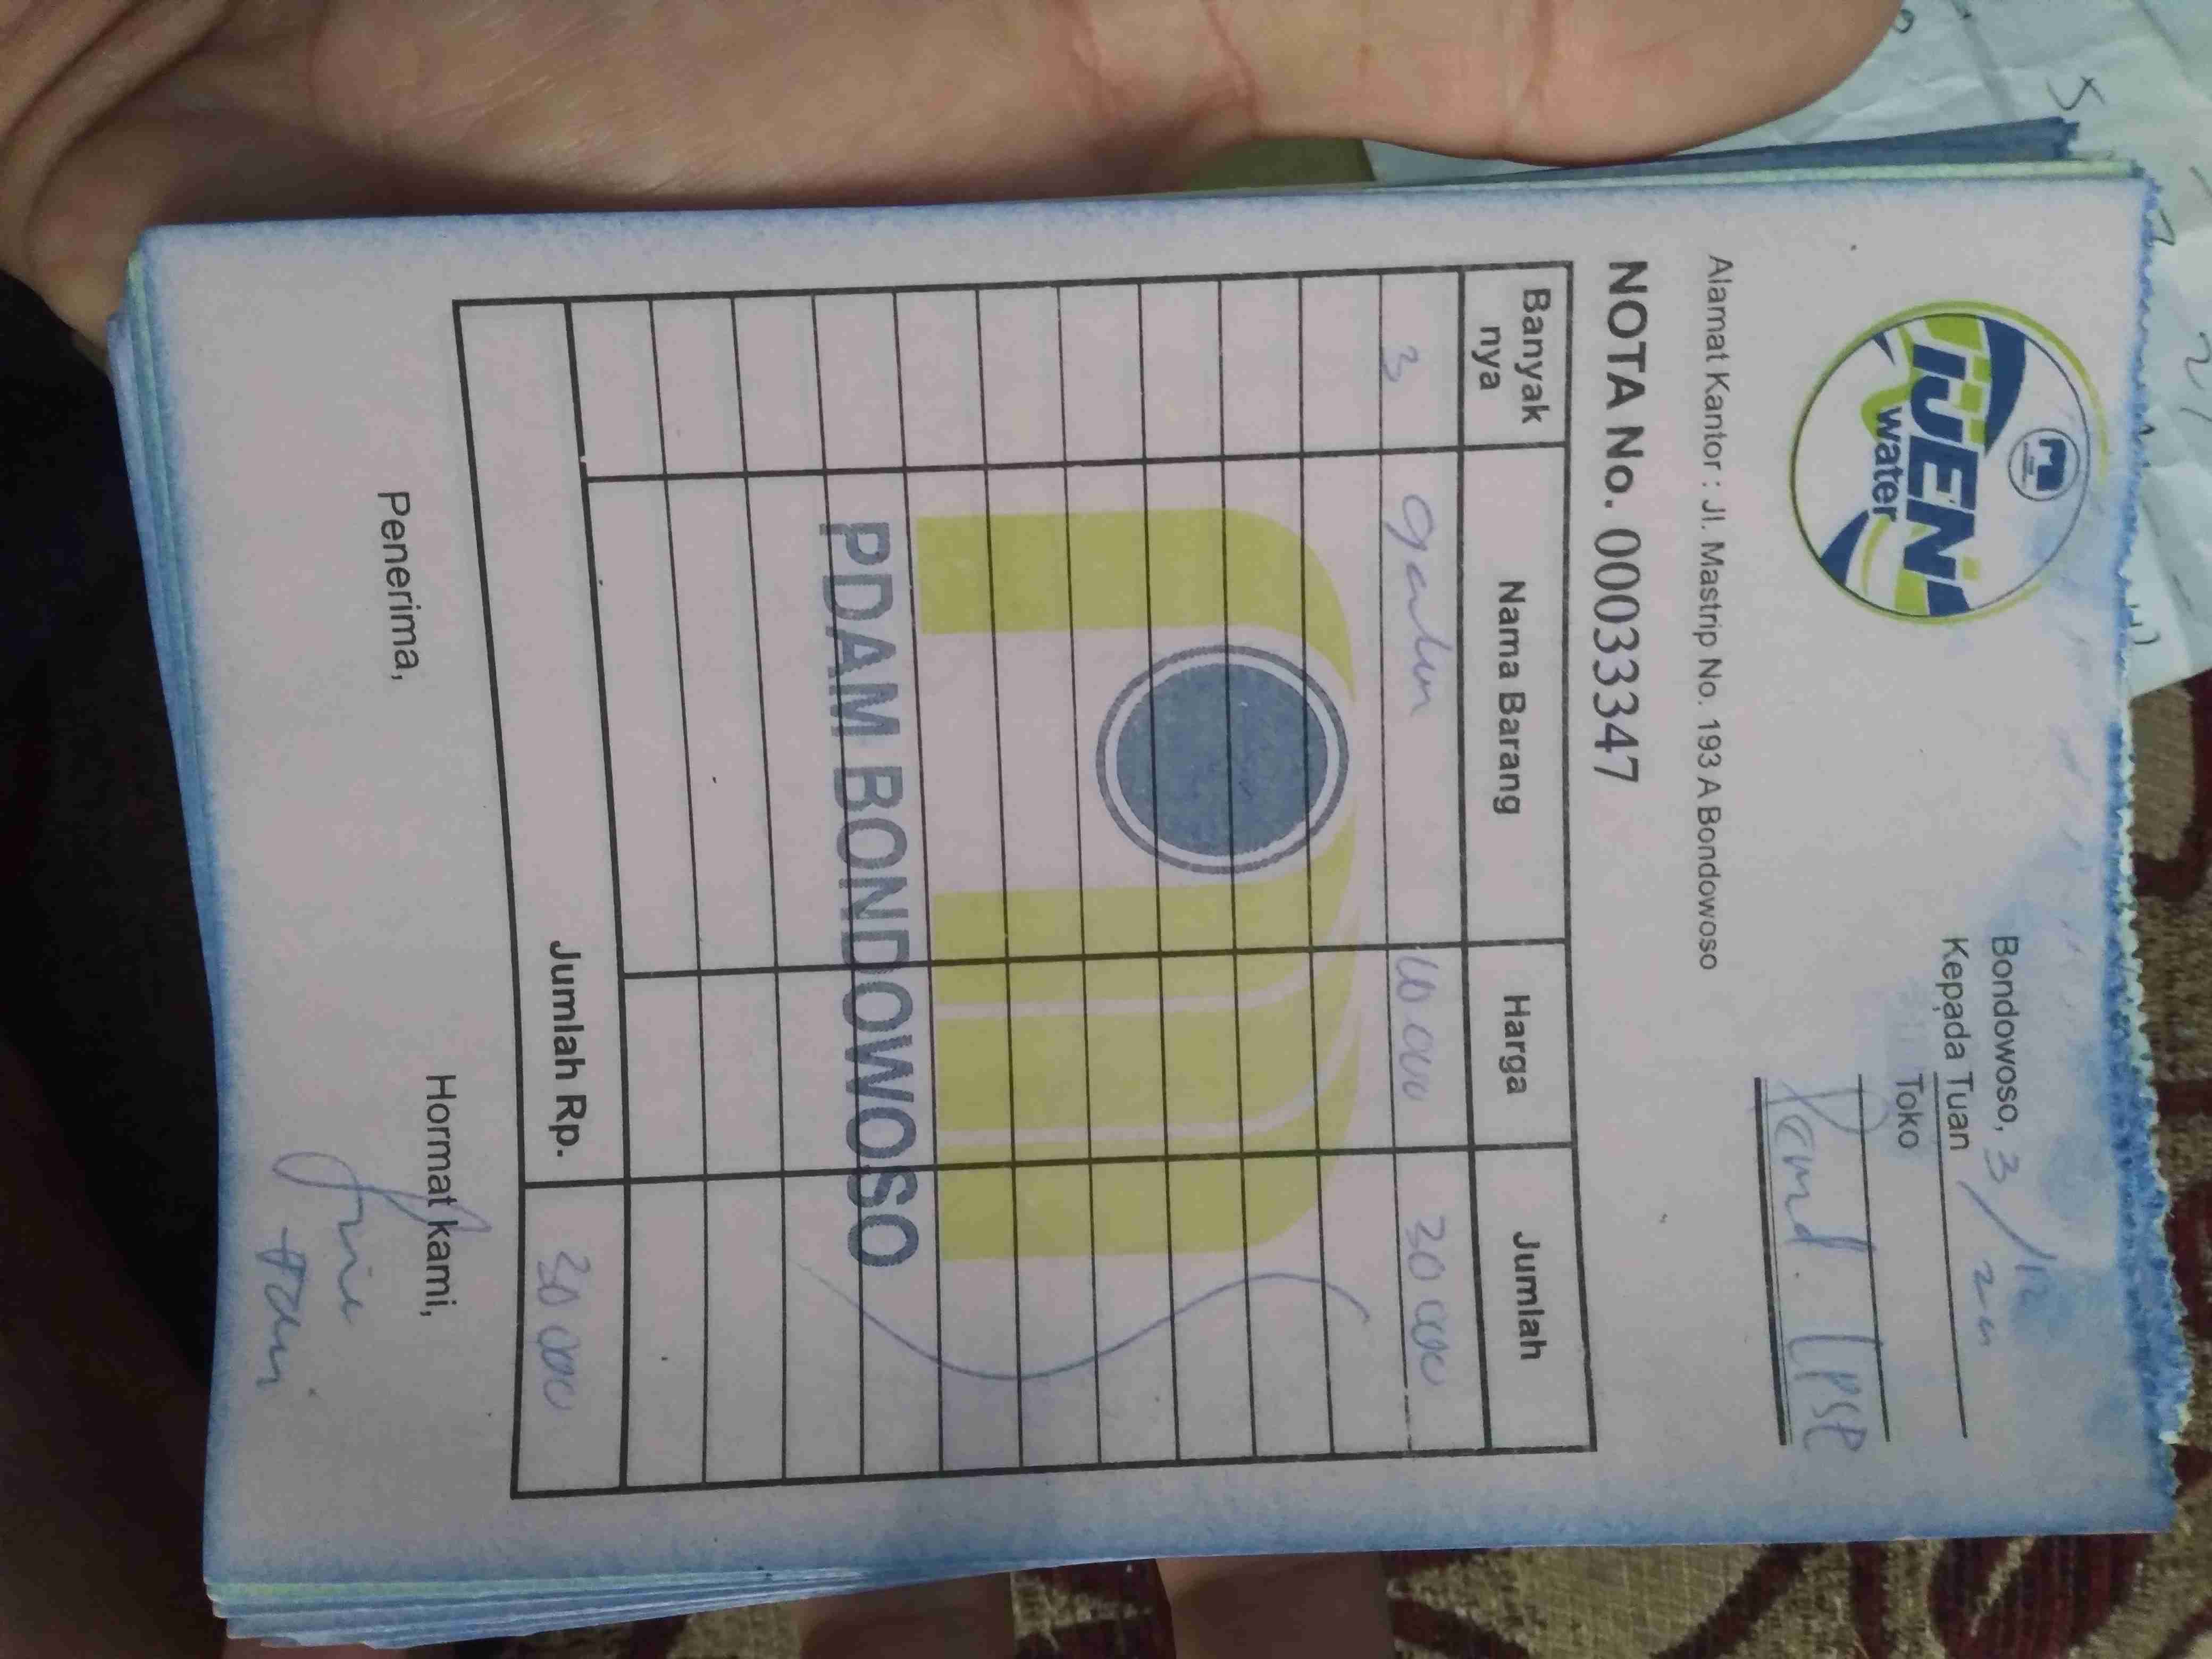 IJEN
water
Bondowoso, 3/12 20
Kepada Tuan
Toko
Pemd. LPSE
Alamat Kantor : Jl. Mastrip No. 193 A Bondowoso
NOTA No. 00033347
Banyak nya Nama Barang Harga Jumlah
3 galon 10 000 30 000
PDAM BONDOWOSO
Jumlah Rp. 30 000
Penerima, Hormat kami,